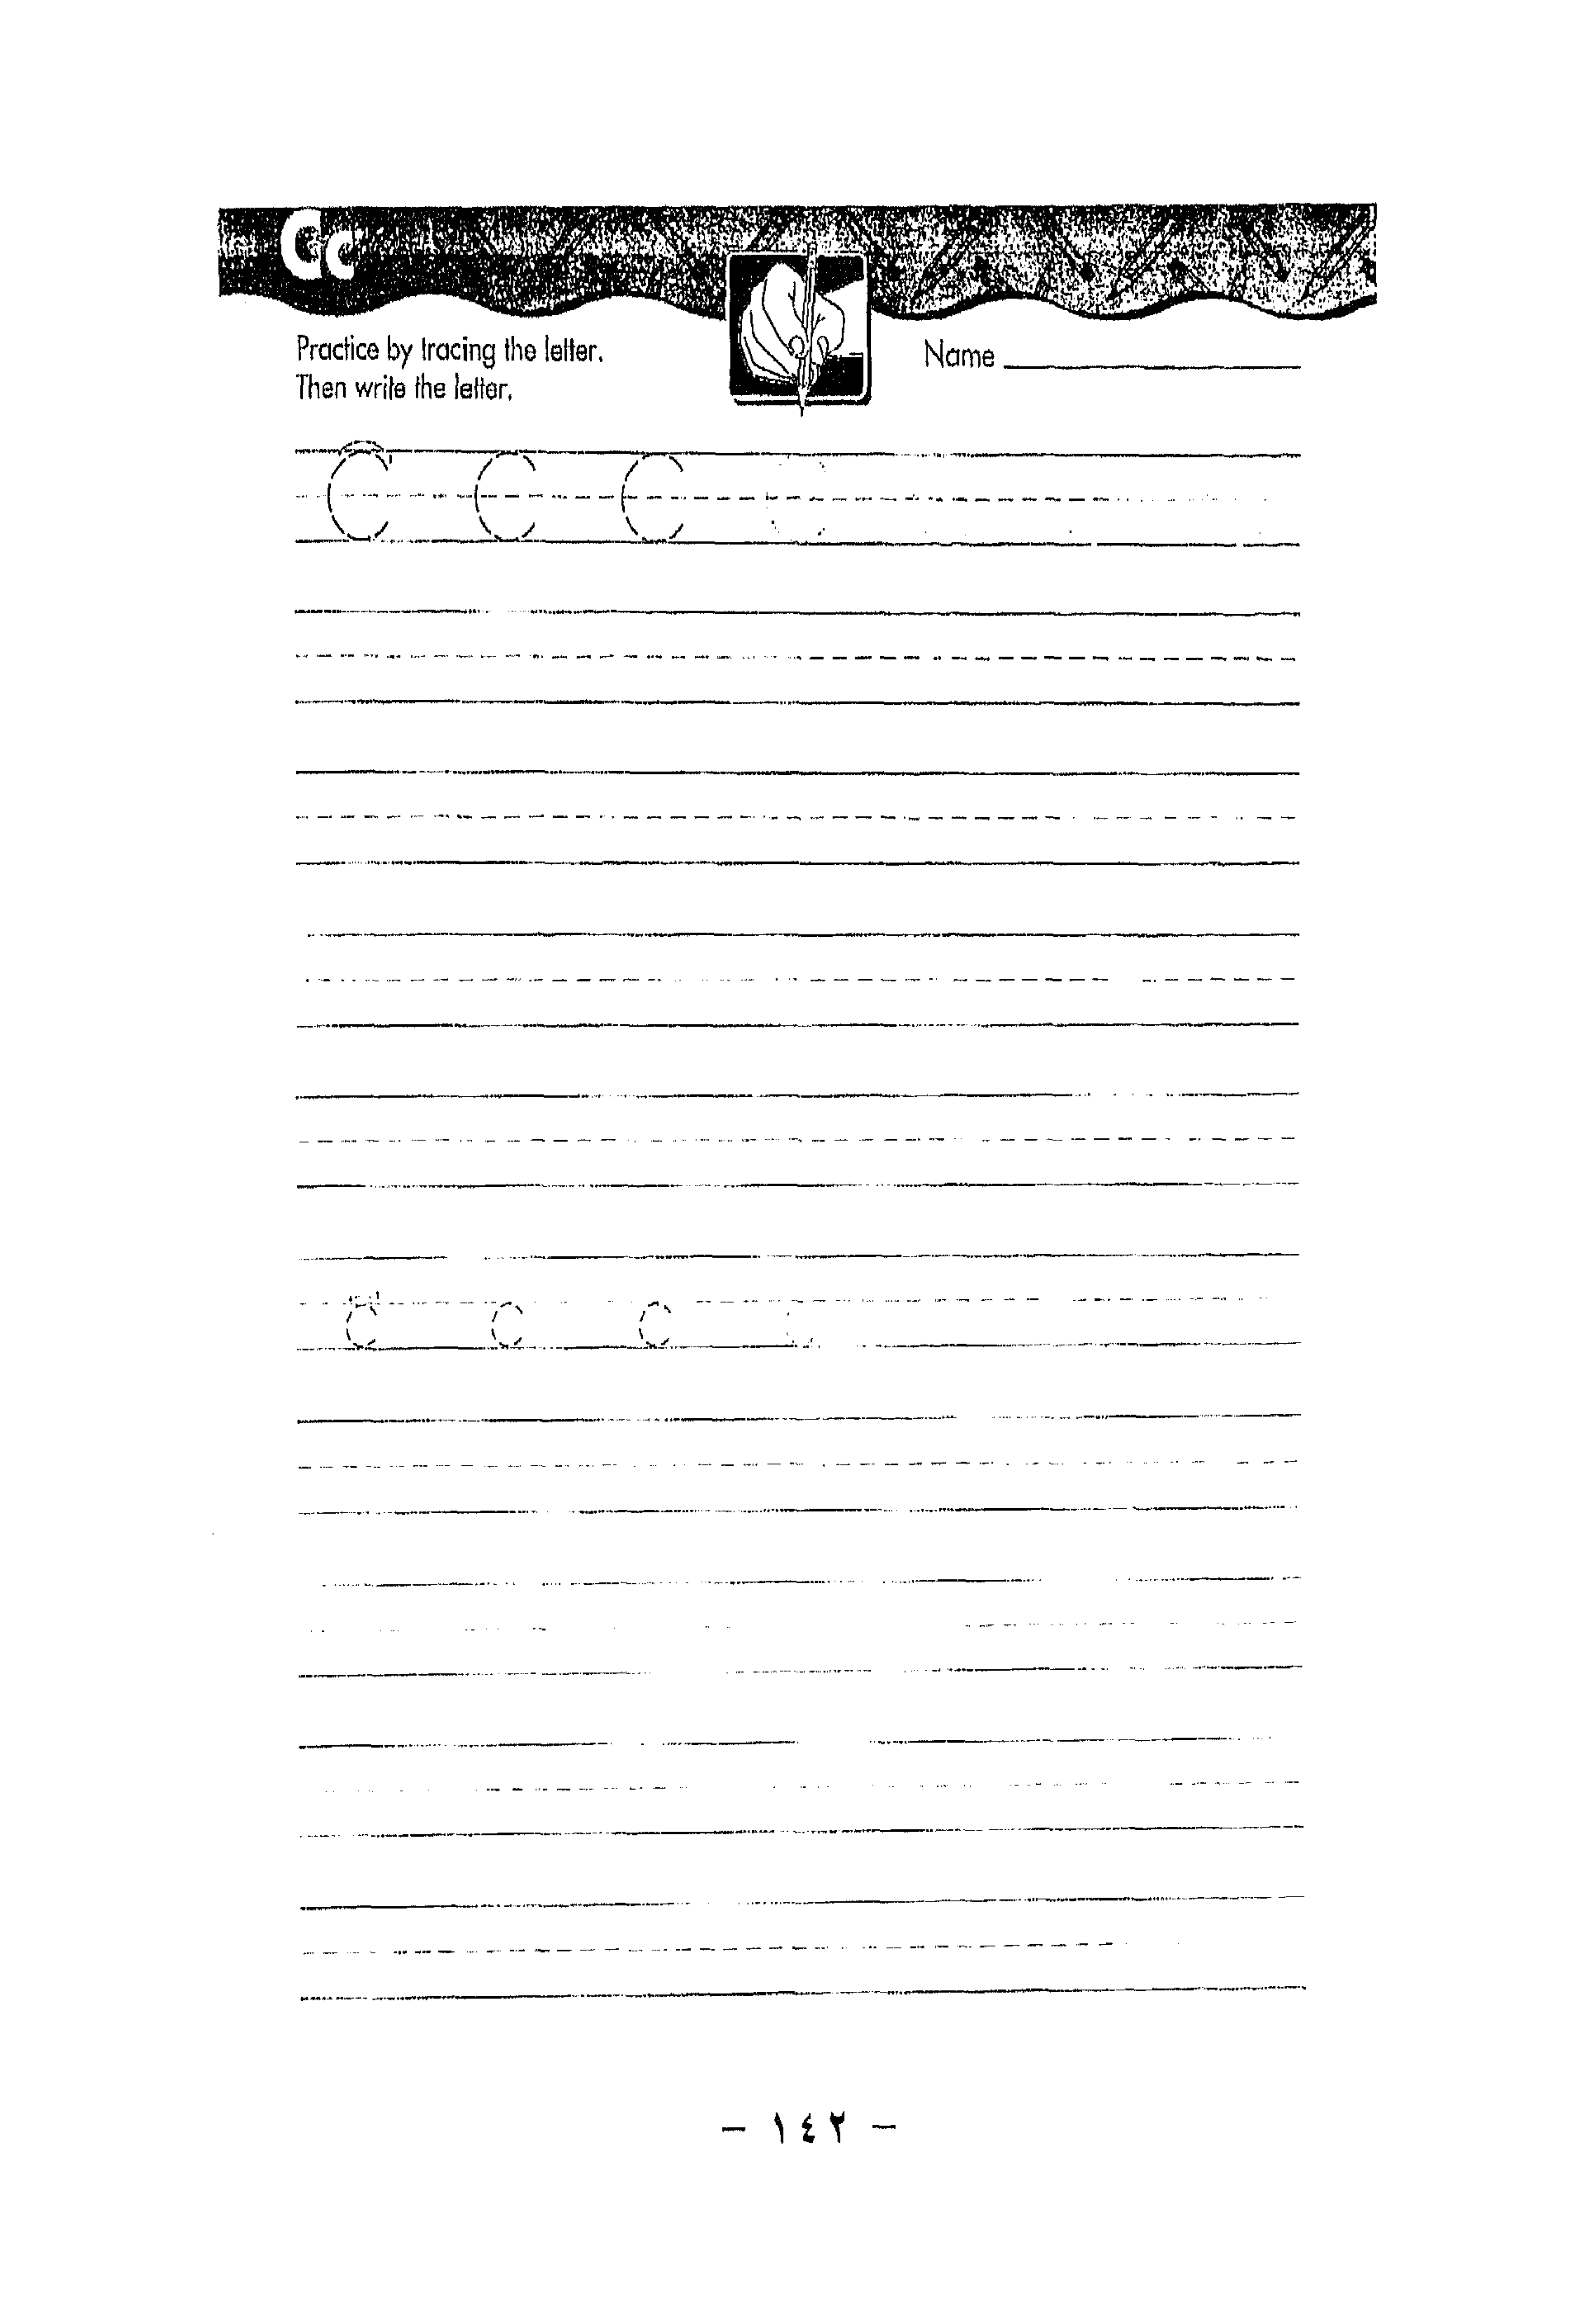 Cc
Practice by tracing the letter.
Then write the letter.
Name
C C C C
c c c c
- ١٤٢ -